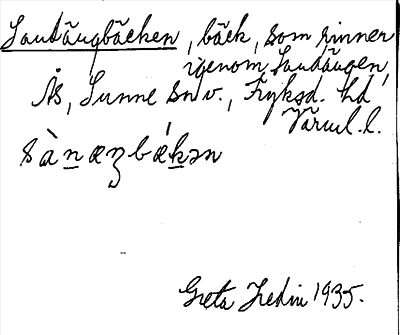 Sandängbäcken, bäck, som rinner
igenom Sandängen,
Ås, Sunne sn v., Fryksd. hd
Värml. l.
sànæŋbǽkən
Greta Hedin 1935.